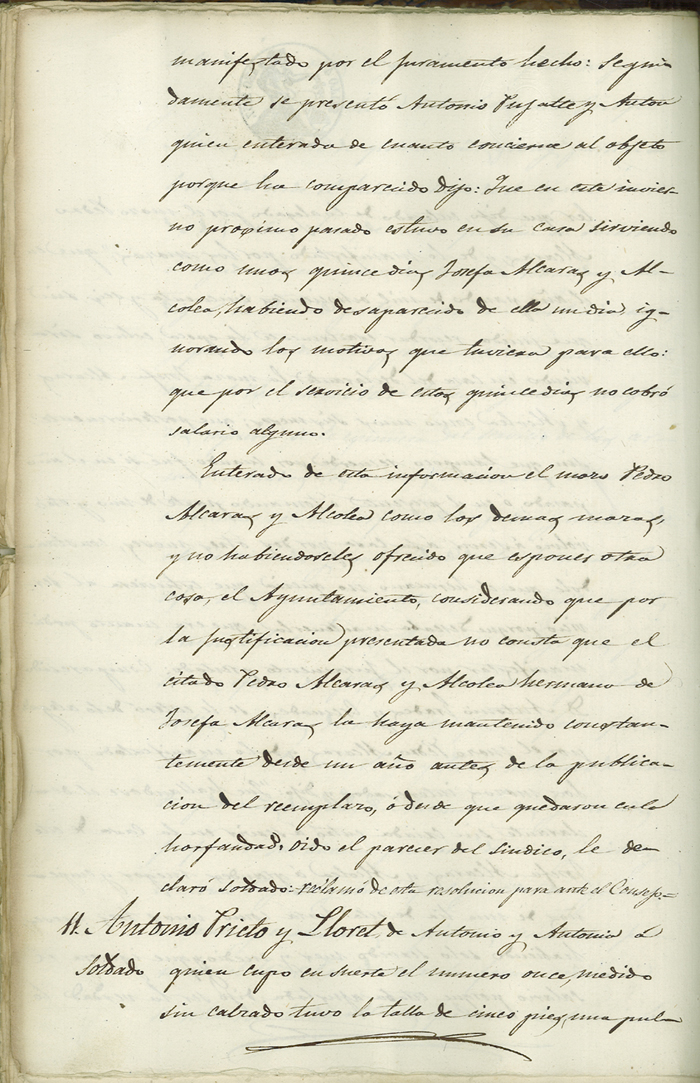 manifestado por el juramento hecho: Segui
damente se presentó Antonio Pujalte y Anton
quien enterado de cuanto concierne al objeto
porque ha comparecido dijo: Que en este invier-
no procsimo pasado estuvo en su casa sirviendo
como unos quince dias Josefa Alcaraz y Al-
colea, habiendo desaparecido de ella un dia, ig-
norando los motivos que tuviera para ello:
que por el servicio de estos quince dias no cobró
salario alguno.
Enterado de esta informacion el mozo Pedro
Alcaraz y Alcolea como los demas mozos,
y no habiendoseles ofrecido que esponer otra
cosa, el Ayuntamiento, considerando que por
la justificacion presentada no consta que el
citado Pedro Alcaraz y Alcolea hermano de
Josefa Alcaraz la haya mantenido constan-
temente desde un año antes de la publica-
cion del reemplazo, ó desde que quedaron en la
horfandad, oido el parecer del sindico, le de
claró soldado: reclamó de esta resolucion para ante el Consejo-
11. Antonio Prieto y Lloret, de Antonio y Antonia á
Soldado quien cupo en suerte el numero once, medido
sin calzado tuvo la talla de cinco pies, una pulα